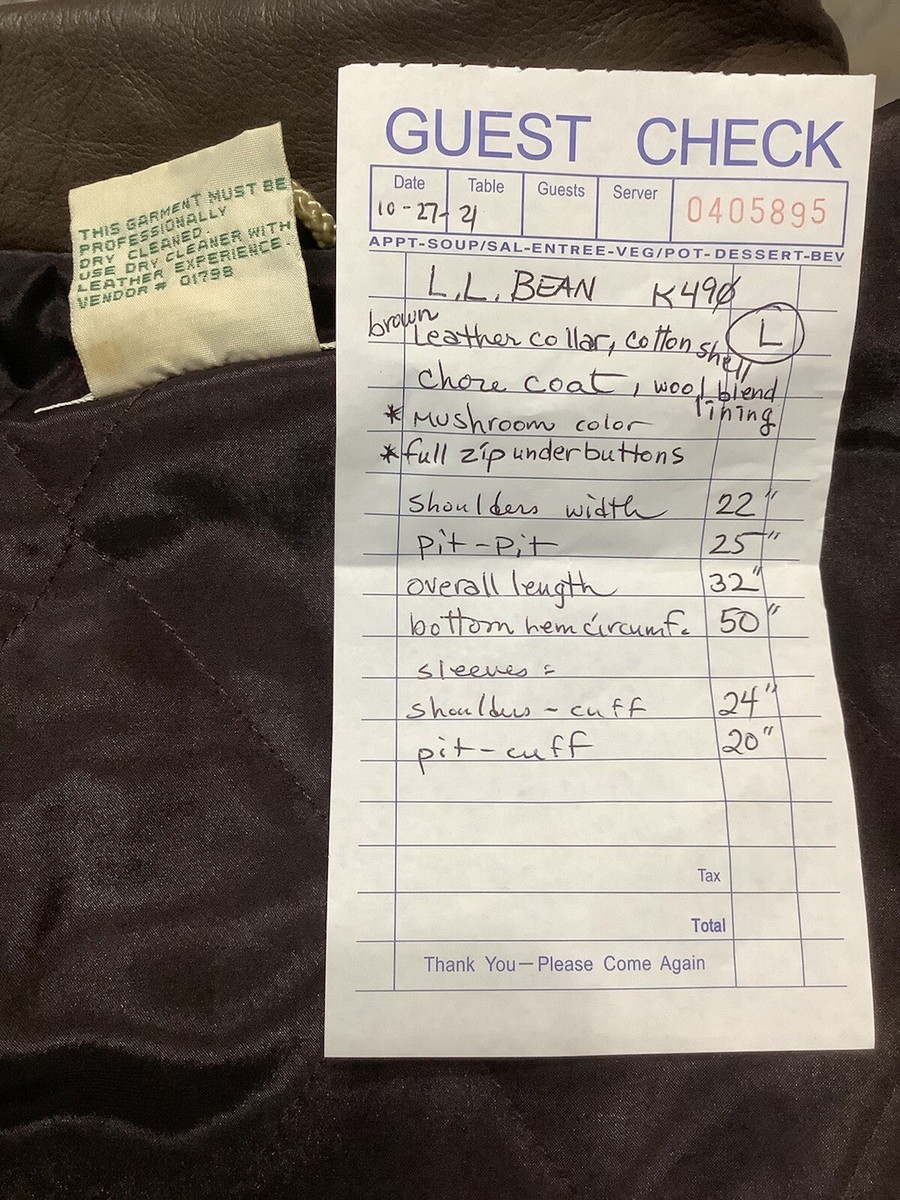 THIS GARMENT MUST BE
PROFESSIONALLY
DRY CLEANED.
USE DRY CLEANER WITH
LEATHER EXPERIENCE.
VENDOR # 01798
GUEST CHECK
Date Table Guests Server 0405895
10-27- 21
APPT-SOUP/SAL-ENTREE-VEG/POT-DESSERT-BEV
L.L. BEAN K490
brown L
Leather collar, cotton shell
chore coat, wool blend
lining
* Mushroom color
* full zip under buttons
Shoulders width 22"
pit-pit 25"
overall length 32"
bottom hem circumf. 50"
sleeves =
shoulders - cuff 24"
pit-cuff 20"
Tax
Total
Thank You—Please Come Again